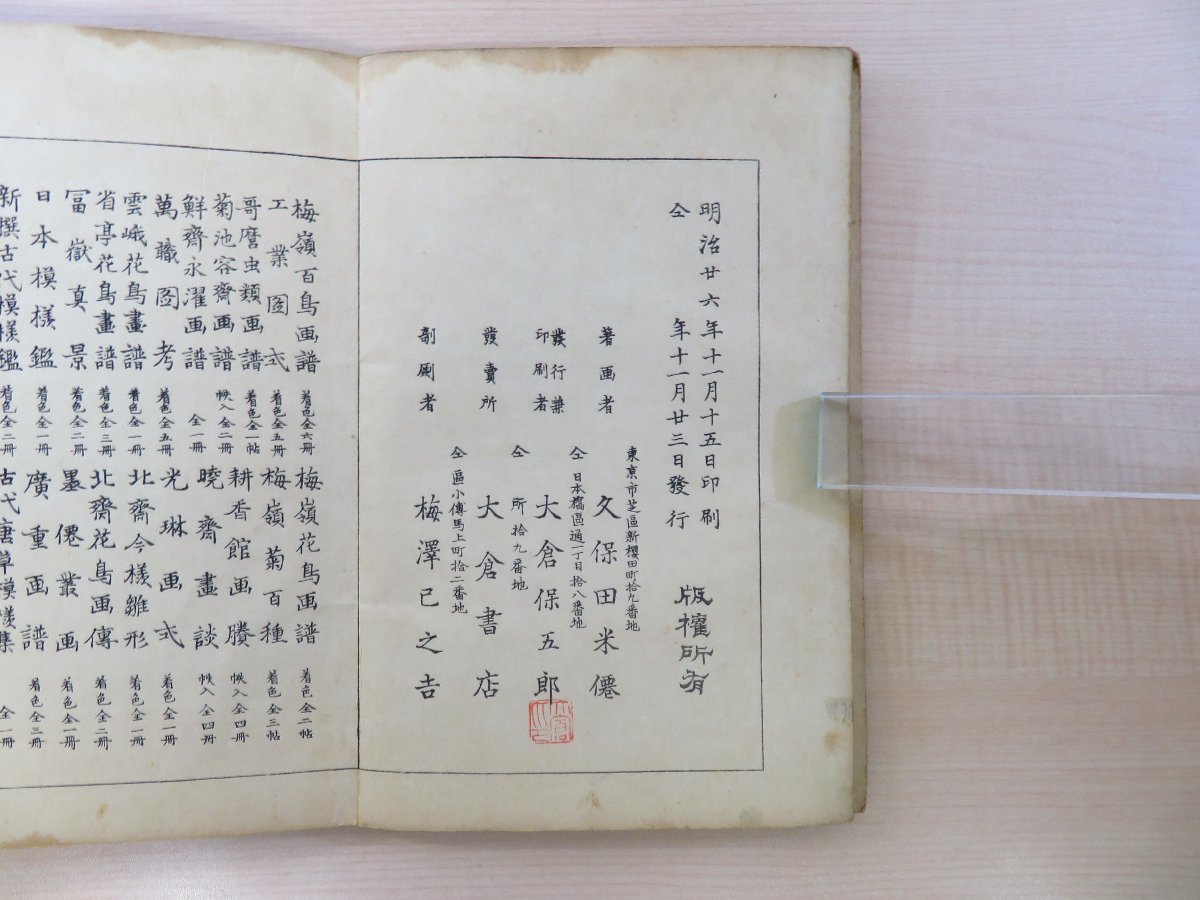 明治廿六年十一月十五日印刷
仝年十一月廿三日發行
版權所有
東京市芝區新櫻田町拾九番地
著画者 久保田米僊
仝日本橋區通一丁目拾八番地
發行兼印刷者 大倉保五郎
仝所拾九番地
發賣所 大倉書店
仝區小傳馬上町拾二番地
剞劂者 梅澤巳之吉
梅嶺百鳥画譜 着色全六冊
工業図式 着色全五冊
哥麿虫類画譜 着色全一帖
菊池容齋画譜 帙入全二冊
鮮齋永濯画譜 全一冊
萬職図考 着色全五冊
雲峨花鳥畫譜 着色全一冊
省亭花鳥畫譜 着色全三冊
冨嶽真景 着色全二冊
日本模様鑑 着色全一冊
新撰古代模様鑑 着色全二冊
梅嶺花鳥画譜 着色全二帖
梅嶺菊百種 着色全三帖
耕香館画賸 帙入全四冊
曉齋畫談 帙入全四冊
光琳画式 着色全一冊
北齋今様雛形 着色全一冊
北齋花鳥画傳 着色全二冊
墨僊叢画 着色全一冊
廣重画譜 着色全三冊
古代唐草模様集 全一冊